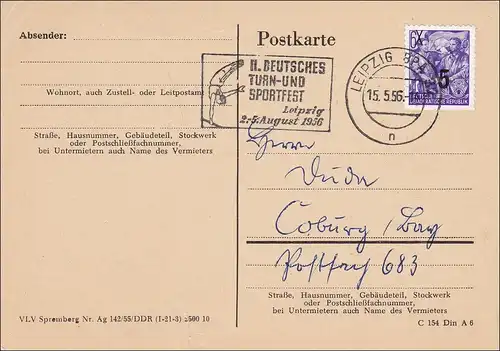 Absender:
Postkarte
II. DEUTSCHES
TURN-UND
SPORTFEST
Leipzig
2.-5. August 1956
LEIPZIG
15.5.56.
n
5
DEMOKRATISCHE REPUBLIK
Wohnort, auch Zustell- oder Leitpostamt
Straße, Hausnummer, Gebäudeteil, Stockwerk
oder Postschließfachnummer,
bei Untermietern auch Name des Vermieters
Herrn
Duda
Coburg / Bay
Postfach 683
Straße, Hausnummer, Gebäudeteil, Stockwerk
oder Postschließfachnummer,
bei Untermietern auch Name des Vermieters
VLV Spremberg Nr. Ag 142/55/DDR (I-21-3) 2500 10
C 154 Din A 6